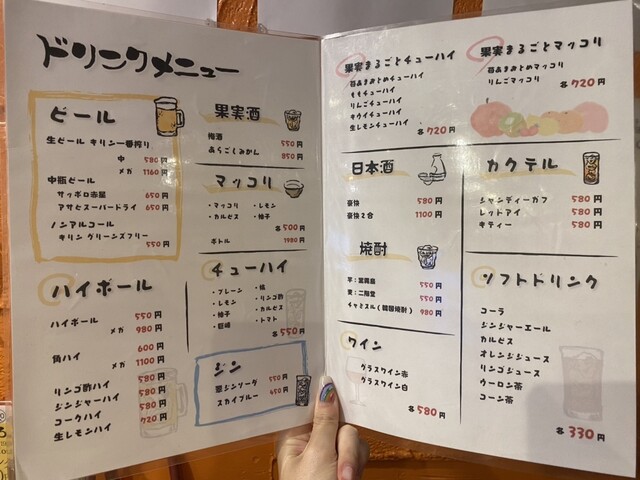 ドリンクメニュー
ビール
生ビール キリン一番搾り
中 580円
メガ 1160円
中瓶ビール
サッポロ赤星 650円
アサヒスーパードライ 650円
ノンアルコール
キリン グリーンズフリー
550円
ハイボール
ハイボール 550円
メガ 980円
角ハイ 600円
メガ 1100円
リンゴ酢ハイ 580円
ジンジャーハイ 580円
コークハイ 580円
生レモンハイ 720円
果実酒
梅酒 550円
あらごしみかん 850円
マッコリ
・マッコリ ・レモン
・カルピス ・柚子
各500円
ボトル 1980円
チューハイ
・プレーン ・桃
・レモン ・リンゴ酢
・柚子 ・カルピス
・巨峰 ・トマト
各550円
ジン
翠ジンソーダ 550円
スカイブルー 650円
果実まるごとチューハイ
苺あまみとめチューハイ
ももチューハイ
りんごチューハイ
キウイチューハイ
生レモンチューハイ
各720円
果実まるごとマッコリ
苺あまみとめマッコリ
りんごマッコリ
各720円
日本酒
豪快 580円
豪快2合 1100円
焼酎
芋:黒霧島 550円
麦:二階堂 550円
チャミスル(韓国焼酎) 980円
ワイン
グラスワイン赤
グラスワイン白
各580円
カクテル
シャンディーガフ 580円
レッドアイ 580円
キティー 580円
ソフトドリンク
コーラ
ジンジャーエール
カルピス
オレンジジュース
リンゴジュース
ウーロン茶
コーン茶
各330円